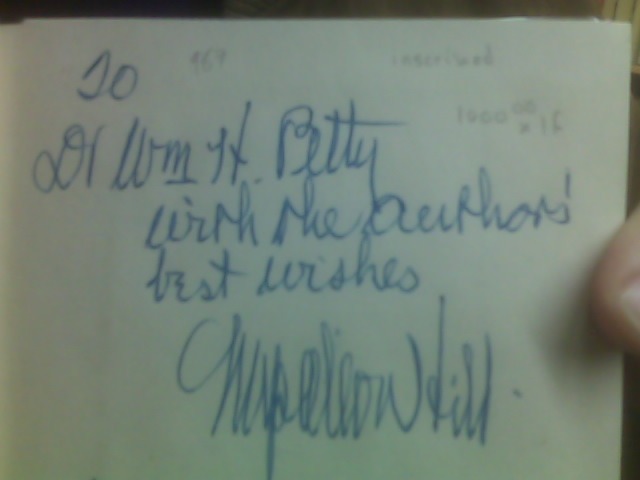 To
467 inscribed
1000.00
Dr Wm H. Petty
with the author's
best wishes
Napoleon Hill